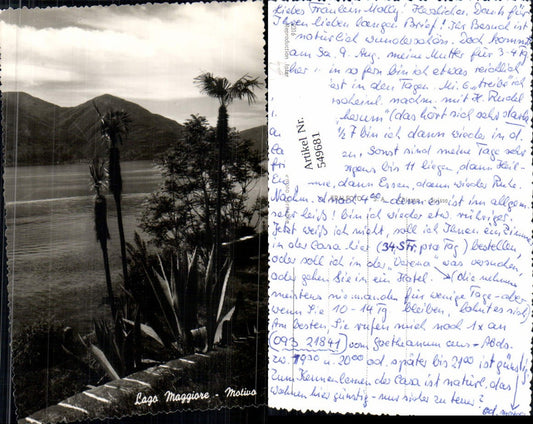 Lago Maggiore - Motivo
Artikel Nr.
549681
liebes Fräulein Molly! Herzlichen Dank für
Ihren lieben langen Brief! Ihr Besuch ist
natürlich wunderschön. Doch kommt
am Sa. 9. Aug. meine Mutter für 3-4 Tg
her in sofern bin ich etwas
ist in den Tagen. Mi. ich
nachm. mit H.
"herum" (das hört sich sehr stark
1/2 7 bin ich dann wieder in d.
Sonst sind meine Tage sehr
bis 11 liegen, dann Heil-
dann Essen, dann wieder Ruhe.
Nachm. 4 denn es ist im allgem.
sehr heiß! bin ich wieder etwas
Jetzt weiß ich nicht, soll ich Ihnen ein Zimmer
in der Casa hier (34 SFr. pro Tag) bestellen,
oder soll ich in der "Verena" was versuchen,
oder gehen Sie in ein Hotel. (die nehmen
meistens niemanden für wenige Tage - aber
wenn Sie 10-14 Tg bleiben, lohnt es sich)
Am besten Sie rufen mich noch 1x an
093 21841 vom Goetheanum aus - Abds.
zw. 19 30 u. 20 00 od. später bis 21 00 ist günstig
Zum Kennenlernen der Casa ist natürl. das
wohnen hier günstig - nur sicher zu teuer?